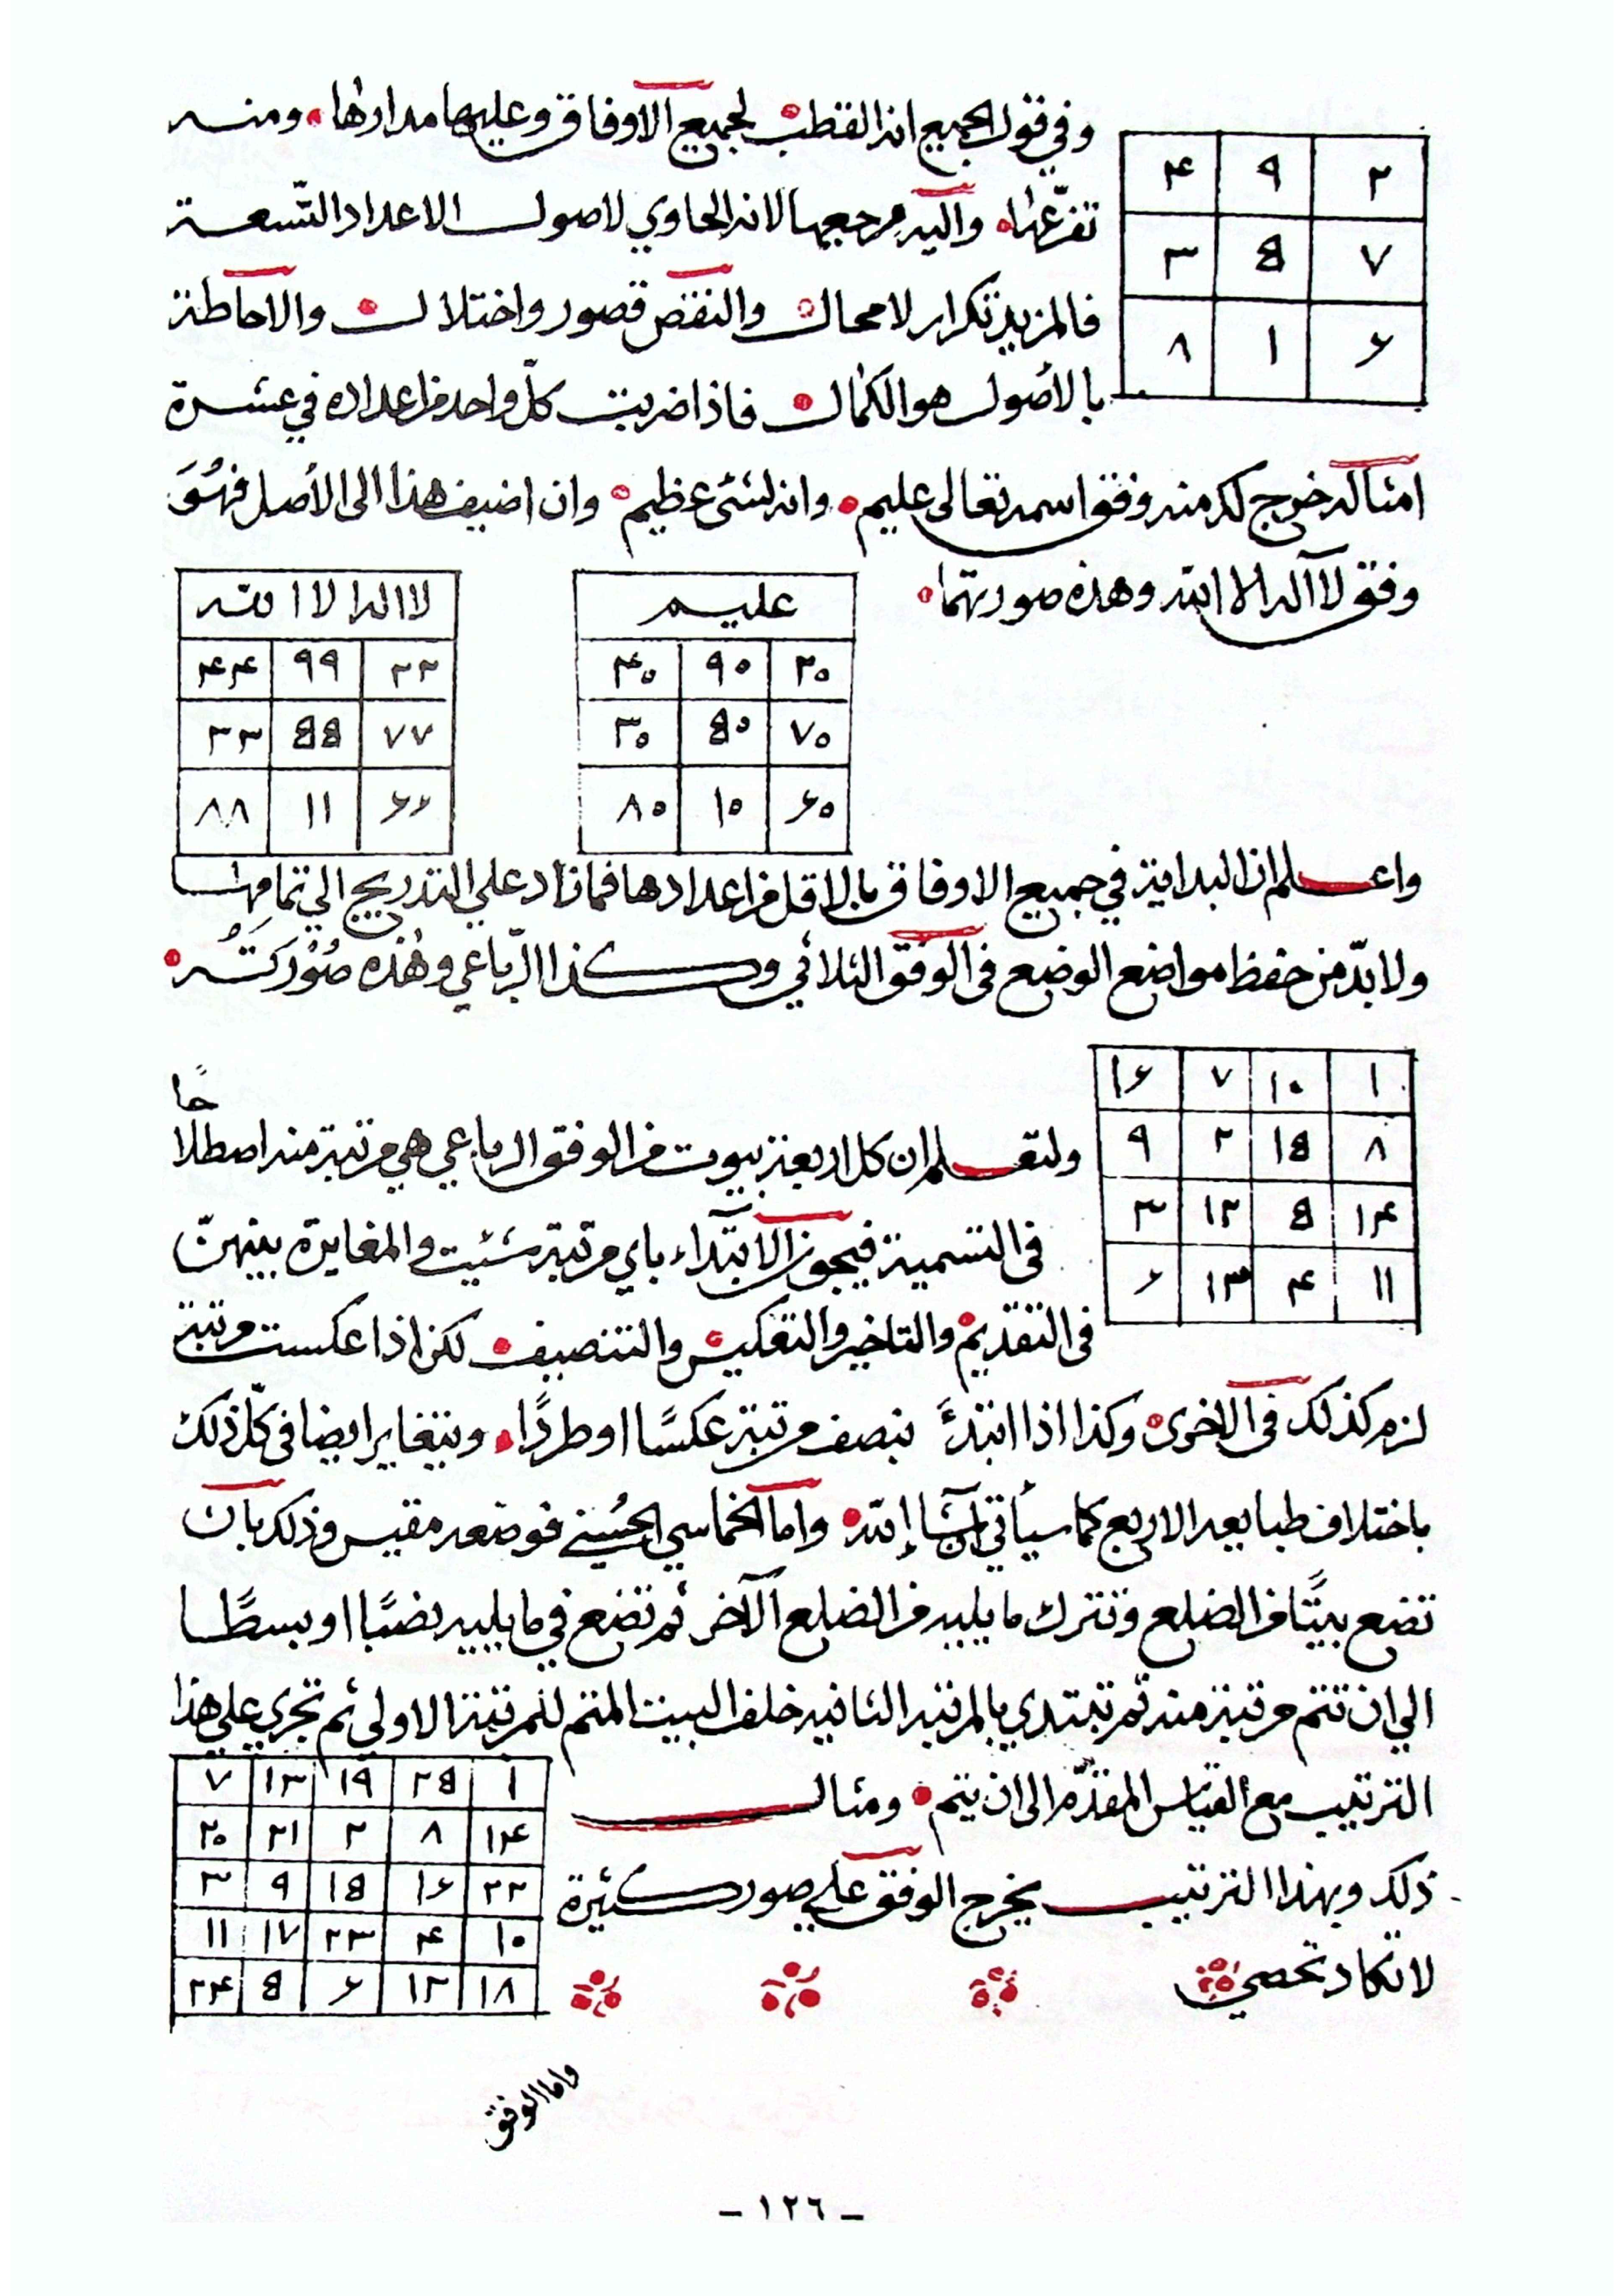 وفي قول الجميع انه القطب لجميع الاوفاق وعليها مدارها ومنه
۲ ۹ ۴
تفرعها واليه مرجعها لانه الحاوي لاصول الاعداد التسعة
۷ ۵ ۳
فالمزيد تكرار لا محال والنقص قصور واختلال والاحاطة
۶ ۱ ۸
بالأصول هو الكمال فاذا ضربت كلّ واحد من اعداده في عشرة
امثاله خرج لك منه وفق اسمه تعالى عليم وانه لشئ عظيم وان اضيف هذا الى الأصل فهُوَ
وفق لا آله الا الله وهذه صورتهما
عليم
۲۰ ۹۰ ۴۰
۷۰ ۵۰ ۳۰
۶۰ ۱۰ ۸۰
لا اله الا الله
۲۲ ۹۹ ۴۴
۷۷ ۵۵ ۳۳
۶۶ ۱۱ ۸۸
واعلم ان البداية في جميع الاوفاق بالاقل من اعدادها فمازاد علي التدريج الي تمامها
ولا بدّ من حفظ مواضع الوضع فى الوفق الثلاثي وكذا الرّباعي وهٰذه صُوْرَتُه
۱ ۱۰ ۷ ۱۶
۸ ۱۵ ۲ ۹
۱۴ ۵ ۱۲ ۳
۱۱ ۴ ۱۳ ۶
ولتعلم ان كل اربعة بيوت من الوفق الرباعي هي مرتبة منه اصطلاحًا
فى التسمية فيجوز الابتداء باي مرتبة شئيت والمغايرة بينهنّ
فى التقديم والتاخير والتعكيس والتنصيف لكن اذا عكست مرتبة
لزم كذلك فى الاخرى وكذا اذا ابتدئ بنصف مرتبة عكسًا او طردًا ويتغاير ايضا فى كلّ ذلك
باختلاف طبايعه الاربع كما سيأتي انشا إلله واما الخماسي الحُسيني فوضعه مقيس وذلك بان
تضع بيتًا من الضلع وتترك ما يليه من الضلع الآخر ثم تضع في ما يليه نصبًا او بسطًا
الي ان تتم مرتبة منه ثم تبتدي بالمرتبه الثانيه خلف البيت المتم للمرتبة الاولى ثم تجري علي هذا
الترتيب مع القياس المقدّم الى ان يتم ومثال
ذلك وبهذا الترتيب يخرج الوفق علي صور كثيرة
لا تكاد تحصي
۱ ۲۵ ۱۹ ۱۳ ۷
۱۴ ۸ ۲ ۲۱ ۲۰
۲۲ ۱۶ ۱۵ ۹ ۳
۱۰ ۴ ۲۳ ۱۷ ۱۱
۱۸ ۱۲ ۶ ۵ ۲۴
واما الوفق
– ١٢٦ –